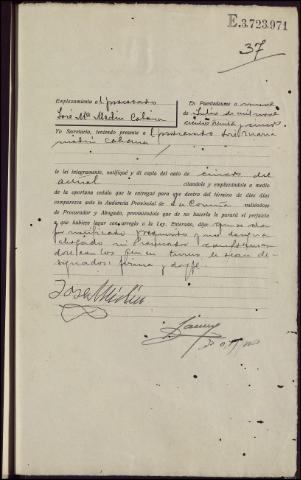 E.3.723.971
37
Emplazamiento al procesado
José Mª Medin Cabana
En Puentedeume a nueve
de Julio de mil novecientos treinta y
Yo Secretario, teniendo presente al procesado José Maria
Medin Cabana
le leí íntegramente, notifiqué y di copia del auto de cinco del
actual citándole y emplazándole a medio
de la oportuna cédula que le entregué para que dentro del término de diez días
comparezca ante la Audiencia Provincial de La Coruña valiéndose
de Procurador y Abogado, previniéndole que de no hacerlo le parará el perjuicio
a que hubiere lugar con arreglo a la Ley. Enterado, dijo: que se da
por notificado y no designa
abogado ni Procurador
con los que en turno le sean de-
signados: firma y doy fe.
José Medin